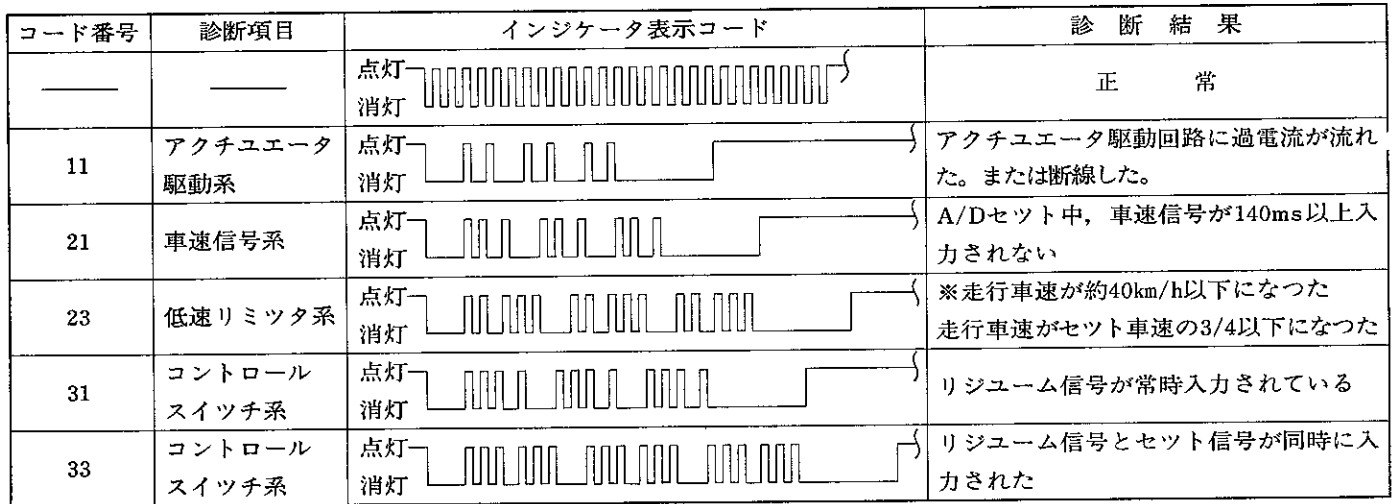 コード番号 診断項目 インジケータ表示コード 診断結果
点灯
消灯
正常
11
アクチユエータ
駆動系
点灯
消灯
アクチユエータ駆動回路に過電流が流れ
た。または断線した。
21
車速信号系
点灯
消灯
A/Dセツト中，車速信号が140ms以上入
力されない
23
低速リミツタ系
点灯
消灯
※走行車速が約40km/h以下になつた
走行車速がセツト車速の3/4以下になつた
31
コントロール
スイツチ系
点灯
消灯
リジユーム信号が常時入力されている
33
コントロール
スイツチ系
点灯
消灯
リジユーム信号とセツト信号が同時に入
力された